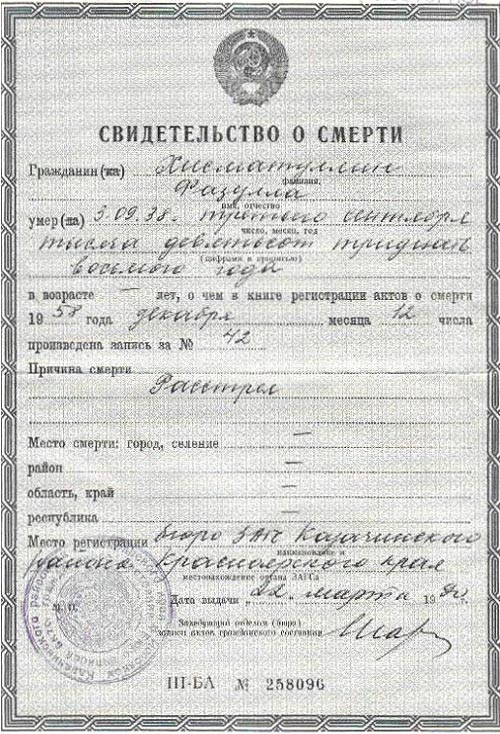 СВИДЕТЕЛЬСТВО О СМЕРТИ
Гражданин (ка) Хисматуллин
фамилия,
Фазулла
имя, отчество
умер (ла) 3.09.38. третьего сентября
число, месяц, год
тысяча девятьсот тридцать
(цифрами и прописью)
восьмого года
в возрасте — лет, о чем в книге регистрации актов о смерти
1958 года декабря месяца 12 числа
произведена запись за № 42
Причина смерти
Расстрел
Место смерти: город, селение —
район —
область, край —
республика —
Место регистрации бюро ЗАГС Казачинского
наименование и
района Красноярского края
местонахождение органа ЗАГСа
М. П.
Дата выдачи 22 марта 1990 г.
Заведующий отделом (бюро)
записи актов гражданского состояния
III-БА № 258096